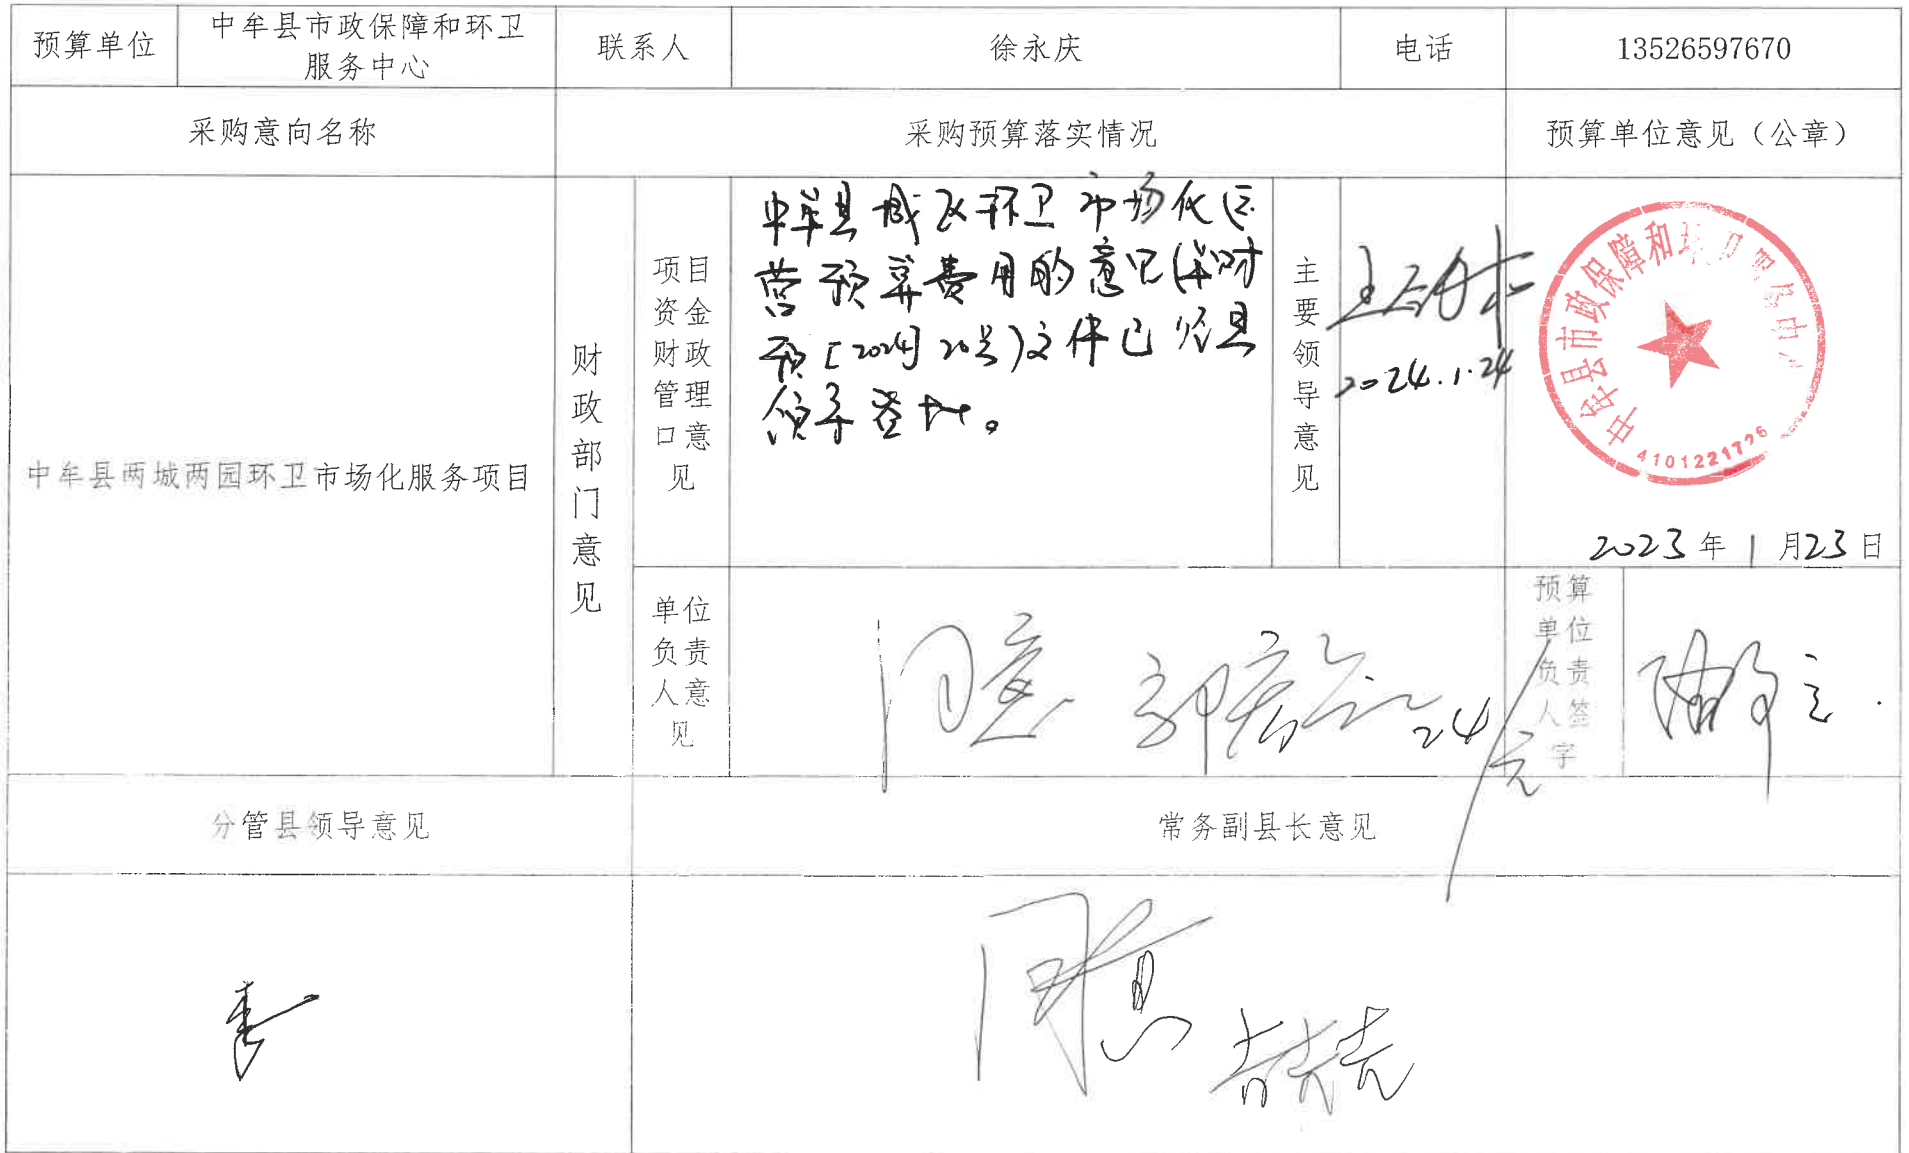 预算单位
中牟县市政保障和环卫
服务中心
联系人
徐永庆
电话
13526597670
采购意向名称
采购预算落实情况
预算单位意见（公章）
中牟县两城两园环卫市场化服务项目
财政部门意见
项目
资金
财政
管理
口意
见
中牟县城区环卫市场化运
营预算费用的意见(牟财
预[2024]20号)文件已经县
领导签批。
主要领导意见
2024.1.24
中牟县市政保障和环卫服务中心
4101221726
2023年1月23日
单位
负责
人意
见
同意
24/元
预算
单位
负责
人签
字
分管县领导意见
常务副县长意见
同意